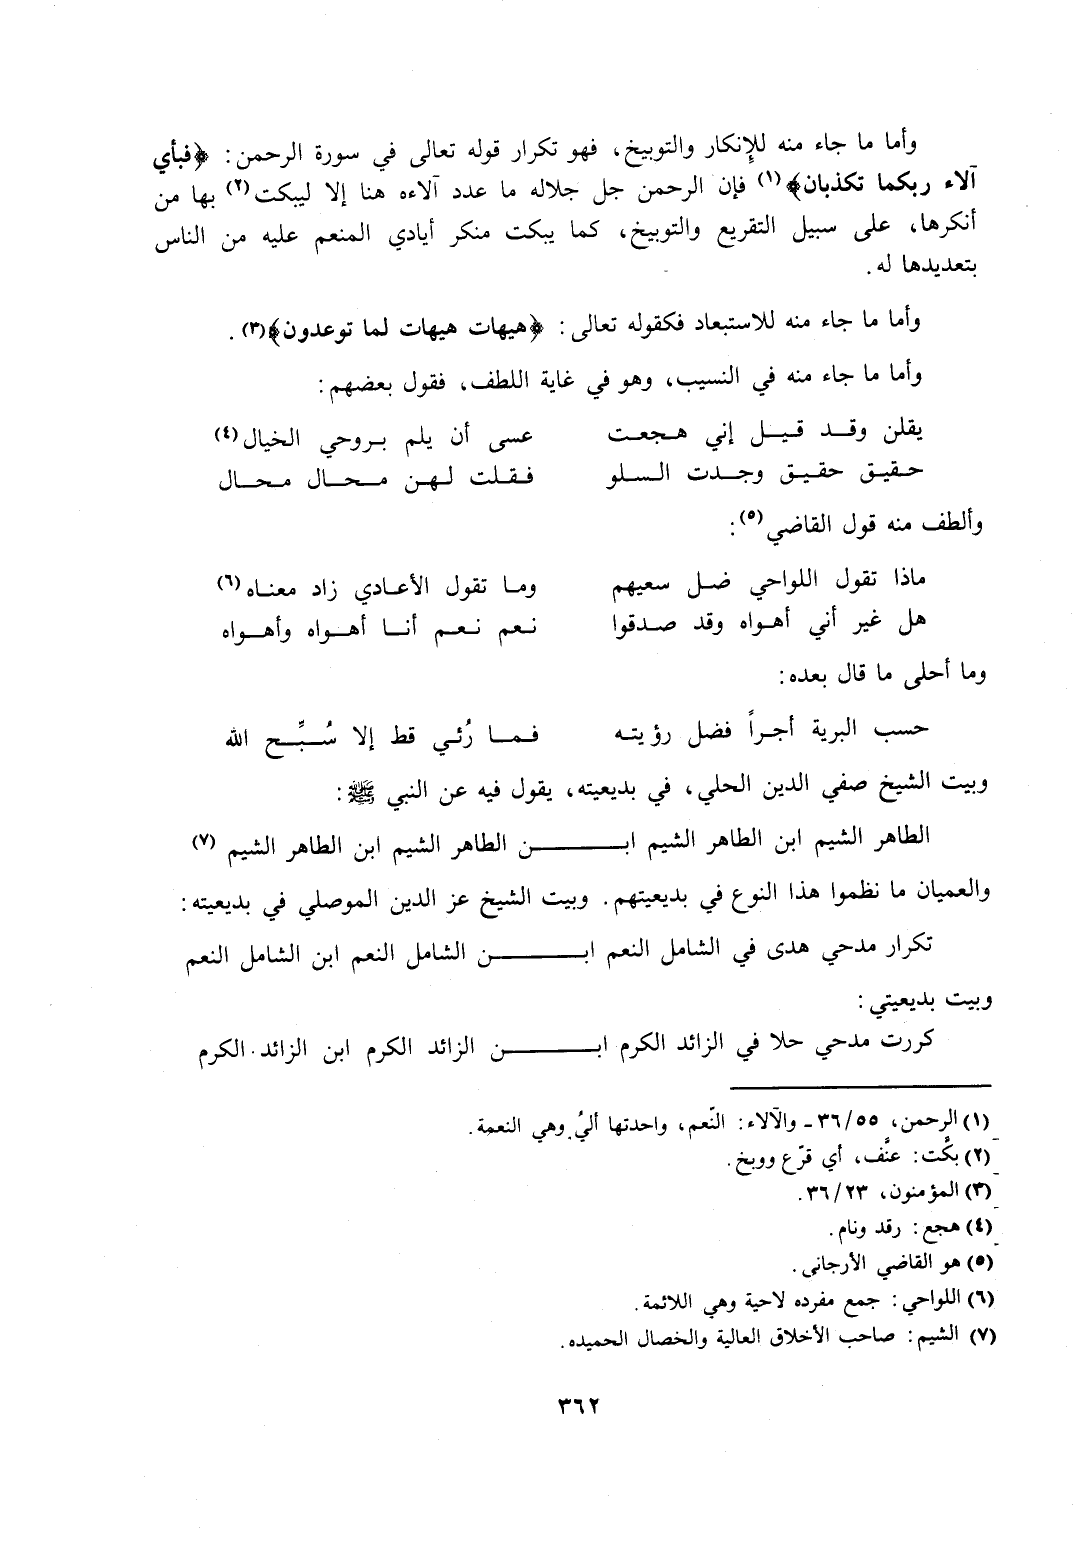 وأما ما جاء منه للإنكار والتوبيخ، فهو تكرار قوله تعالى في سورة الرحمن: ﴿فبأي
آلاء ربكما تكذبان﴾(١) فإن الرحمن جل جلاله ما عدد آلاءه هنا إلا ليبكت(٢) بها من
أنكرها، على سبيل التقريع والتوبيخ، كما يبكت منكر أيادي المنعم عليه من الناس
بتعديدها له.
وأما ما جاء منه للاستبعاد فكقوله تعالى: ﴿هيهات هيهات لما توعدون﴾(٣).
وأما ما جاء منه في النسيب، وهو في غاية اللطف، فقول بعضهم:
يقلن وقد قيل إني هجعت عسى أن يلم بروحي الخيال(٤)
حقيق حقيق وجدت السلو فقلت لهن محال محال
وألطف منه قول القاضي(٥):
ماذا تقول اللواحي ضل سعيهم وما تقول الأعادي زاد معناه(٦)
هل غير أني أهواه وقد صدقوا نعم نعم أنا أهواه وأهواه
وما أحلى ما قال بعده:
حسب البرية أجراً فضل رؤيته فما رُئي قط إلا سُبِّح الله
وبيت الشيخ صفي الدين الحلي، في بديعيته، يقول فيه عن النبي ﷺ:
الطاهر الشيم ابن الطاهر الشيم ابـــــن الطاهر الشيم ابن الطاهر الشيم (٧)
والعميان ما نظموا هذا النوع في بديعيتهم. وبيت الشيخ عز الدين الموصلي في بديعيته:
تكرار مدحي هدى في الشامل النعم ابـــــن الشامل النعم ابن الشامل النعم
وبيت بديعيتي:
كررت مدحي حلا في الزائد الكرم ابـــــن الزائد الكرم ابن الزائد الكرم
(١) الرحمن، ٣٦/٥٥ ـ والآلاء: النّعم، واحدتها أليُ وهي النعمة.
(٢) بكّت: عنَّف، أي قرّع ووبخ.
(٣) المؤمنون، ٣٦/٢٣.
(٤) هجع: رقد ونام.
(٥) هو القاضي الأرجانى.
(٦) اللواحي: جمع مفرده لاحية وهي اللائمة.
(٧) الشيم: صاحب الأخلاق العالية والخصال الحميده.
٣٦٢